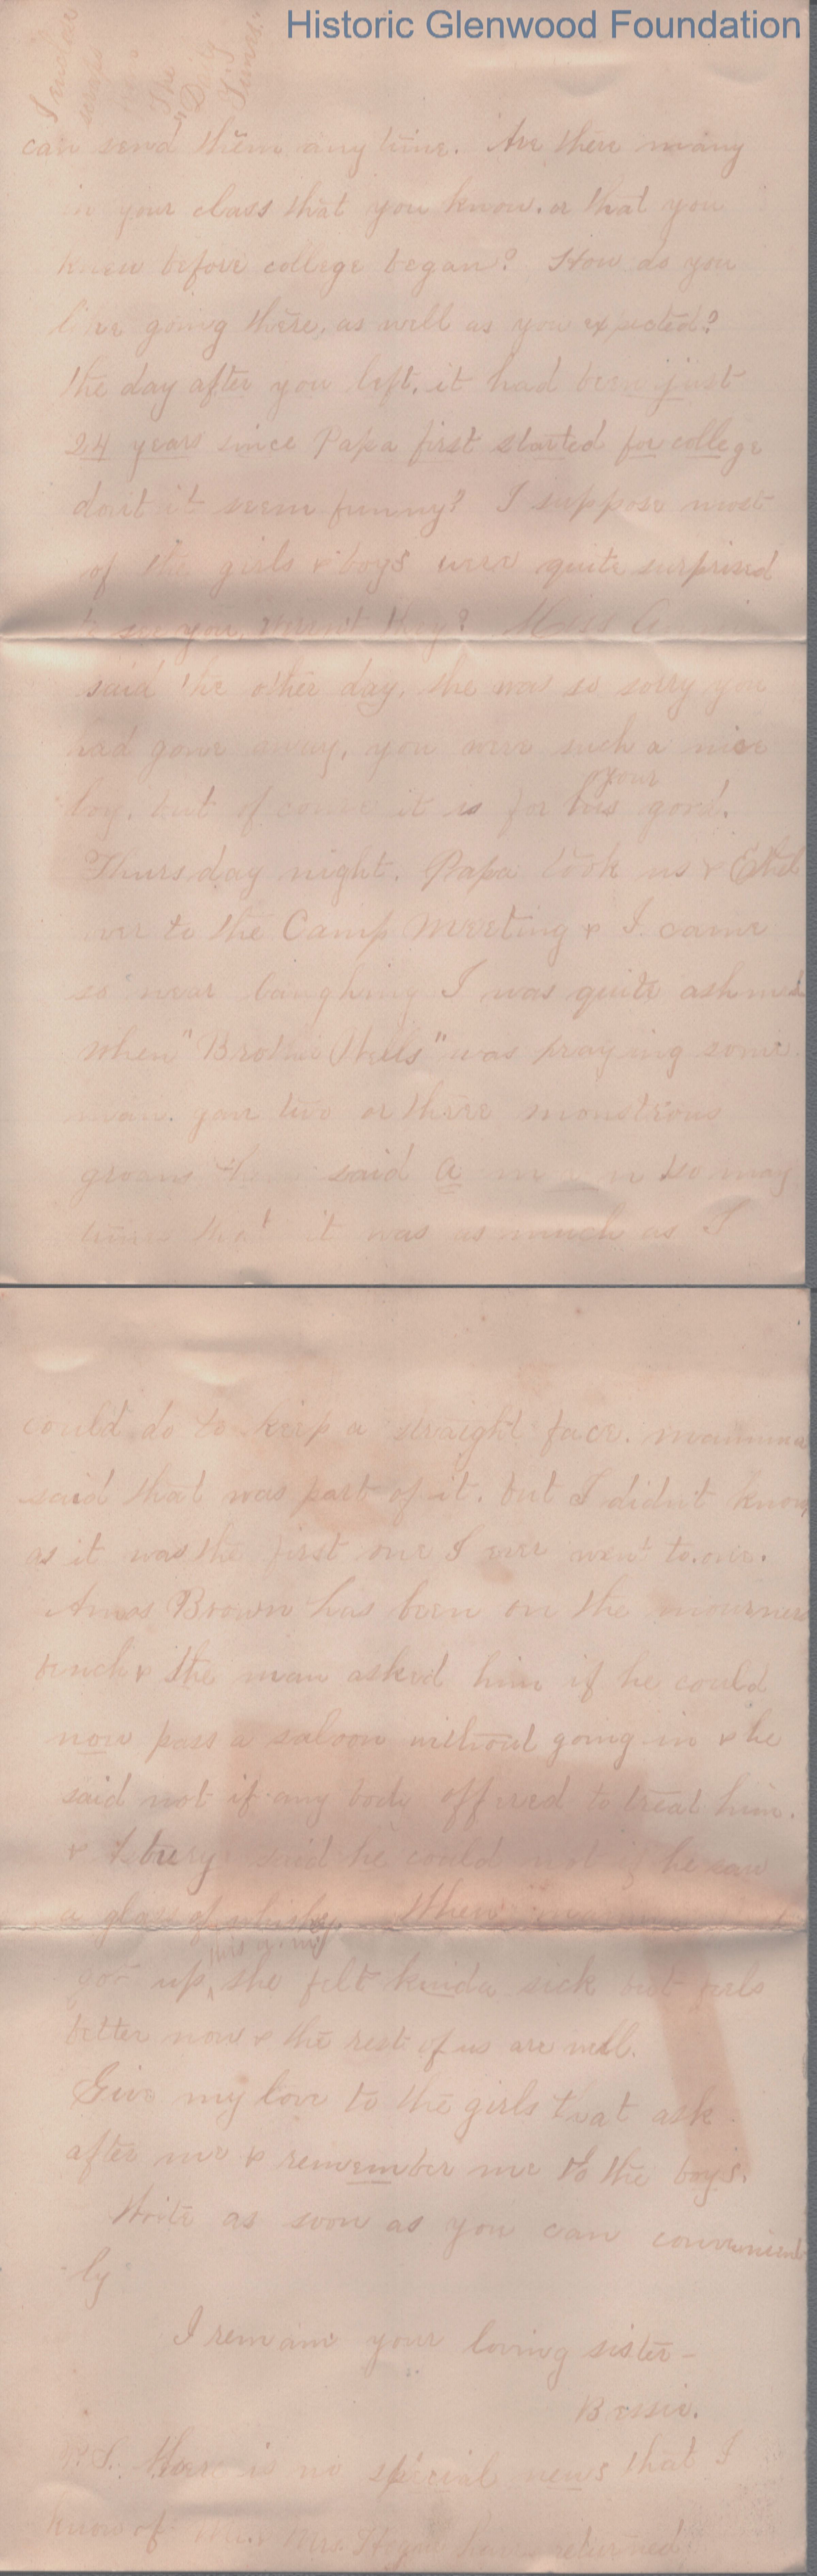 Historic Glenwood Foundation
The
Daily
Times.
can send them any time. Are there many
in your class that you know. or that you
knew before college began? How do you
like going there, as well as you expected?
the day after you left, it had been just
24 years since Papa first started for college
don't it seem funny? I suppose most
of the girls & boys were quite surprised
to see you, weren't they? Miss
said the other day, she was so sorry you
had gone away, you were such a nice
your
boy, but of course it is for his good.
Thursday night. Papa took us & Ethel
over to the Camp Meeting & I came
so near laughing I was quite ashmed
when "Brother Wells" was praying some
man. gave two or three monstrous
groans then said a m e n so many
times that it was as much as I
could do to keep a straight face. mamma
said that was part of it. but I didn't know
as it was the first one I ever went to.
Amos Brown has been on the mourners
bench & the man asked him if he could
now pass a saloon without going in & he
said not if any body offered to treat him.
& said he could not if he saw
a glass of whisky. When mamma
this a. m.
got up, she felt kinda sick but feels
better now & the rest of us are well.
Give my love to the girls that ask
after me & remember me to the boys.
Write as soon as you can convenient
ly
I remain your loving sister-
Bessie.
P.S. there is no special news that I
know of Mrs. Hogue have returned.